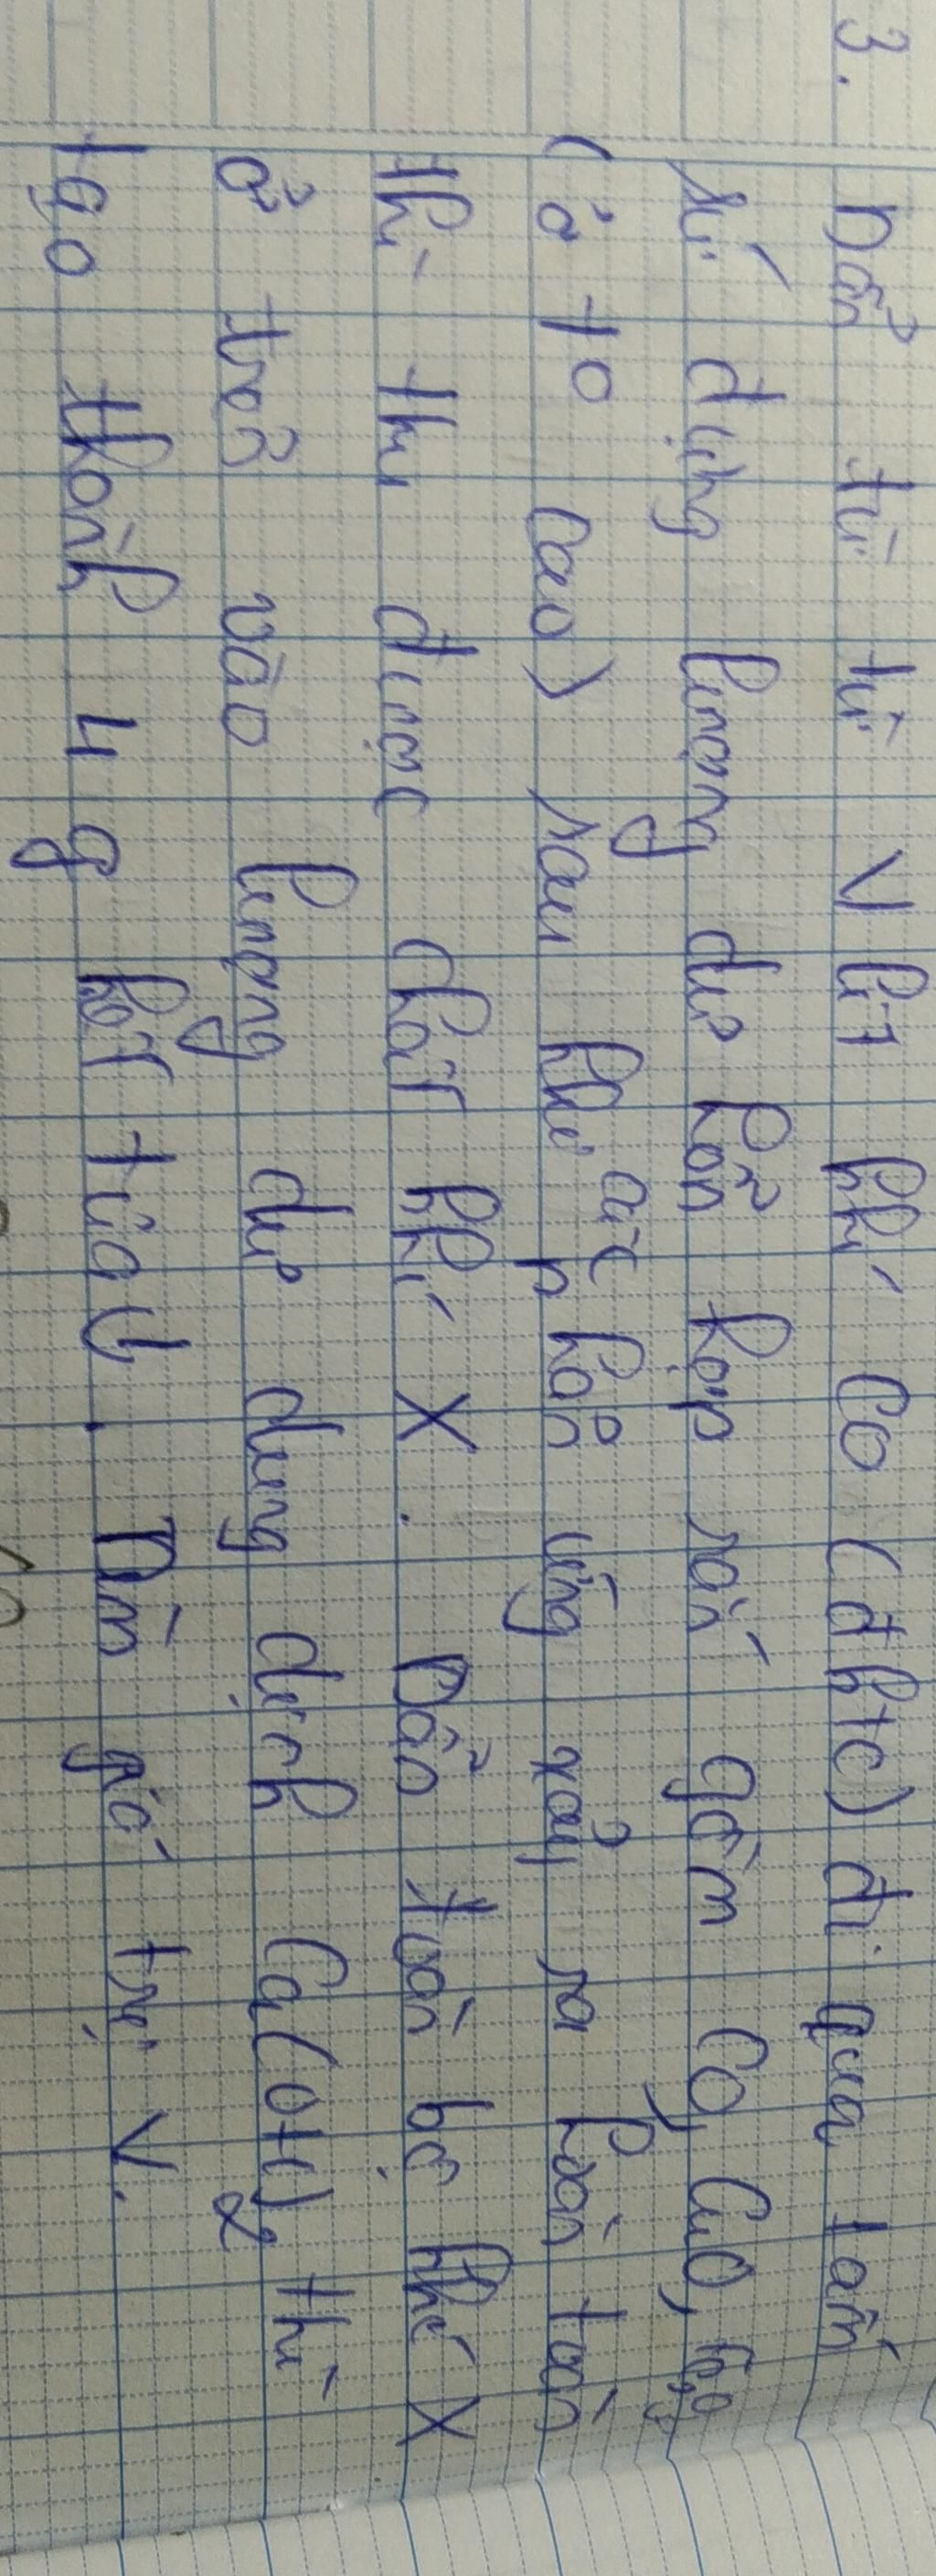 3. Dẫn từ từ V lít khí CO (đktc) đi qua 1 ống
sứ đựng lượng dư hỗn hợp rắn gồm CO, CuO, Fe2O3
(ở to cao) sau khi các phản ứng xảy ra hoàn toàn
thì thu được chất khí X. Dẫn toàn bộ khí X
ở trên vào lượng dư dung dịch Ca(OH)2 thì
tạo thành 4 g kết tủa. Tìm giá trị V.